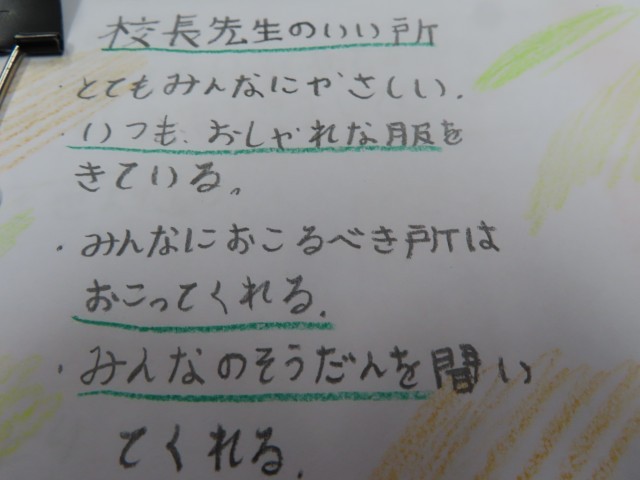 校長先生のいい所
・とてもみんなにやさしい.
・いつも、おしゃれな服を
きている。
・みんなにおこるべき所は
おこってくれる.
・みんなのそうだんを聞い
てくれる.